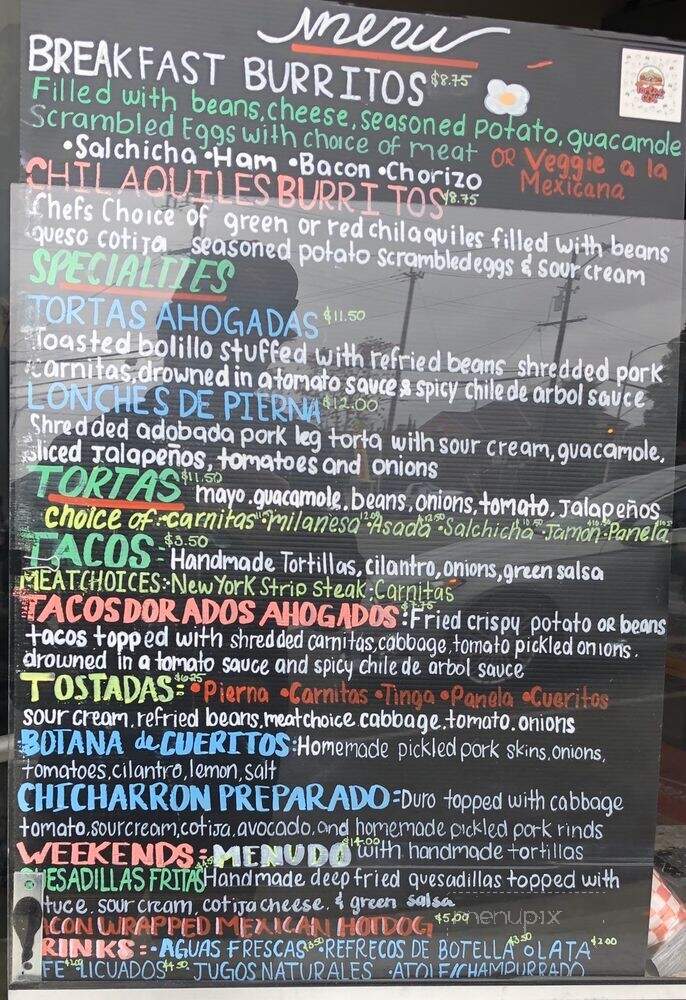 menu
BREAKFAST BURRITOS $8.75
Filled with beans, cheese, seasoned potato, guacamole
Scrambled Eggs with choice of meat OR Veggie a la
•Salchicha •Ham •Bacon •Chorizo Mexicana
CHILAQUILES BURRITOS $8.75
Chefs Choice of green or red chilaquiles filled with beans
queso cotija seasoned potato scrambled eggs & sour cream
SPECIALTIES
TORTAS AHOGADAS $11.50
Toasted bolillo stuffed with refried beans shredded pork
carnitas, drowned in a tomato sauce & spicy chile de arbol sauce
LONCHES DE PIERNA $12.00
Shredded adobada pork leg torta with sour cream, guacamole,
sliced Jalapeños, tomatoes and onions
TORTAS $11.50 mayo, guacamole, beans, onions, tomato, Jalapeños
choice of •carnitas •milanesa •Asada •Salchicha •Jamon •Panela
TACOS- $3.50 Handmade Tortillas, cilantro, onions, green salsa
MEAT CHOICES: New York Strip Steak; Carnitas
TACOS DORADOS AHOGADOS: Fried crispy potato OR beans
tacos topped with shredded carnitas, cabbage, tomato pickled onions.
drowned in a tomato sauce and spicy chile de arbol sauce
TOSTADAS= $6.25 •Pierna •Carnitas •Tinga •Panela •Cueritos
sour cream, refried beans, meat choice cabbage, tomato, onions
BOTANA de CUERITOS: Homemade pickled pork skins, onions,
tomatoes, cilantro, lemon, salt
CHICHARRON PREPARADO= Duro topped with cabbage
tomato, sour cream, cotija, avocado, and homemade pickled pork rinds
WEEKENDS: MENUDO $14.00 with handmade tortillas
UESADILLAS FRITAS Handmade deep fried quesadillas topped with
tuce, sour cream, cotija cheese, & green salsa
ACON WRAPPED MEXICAN HOTDOG $5.00
menupix
RINKS: •AGUAS FRESCAS $3.50 •REFRECOS DE BOTELLA $3.50 o LATA $2.00
FE $2.00 •LICUADOS $4.50 •JUGOS NATURALES •ATOLE/CHAMPURRADO